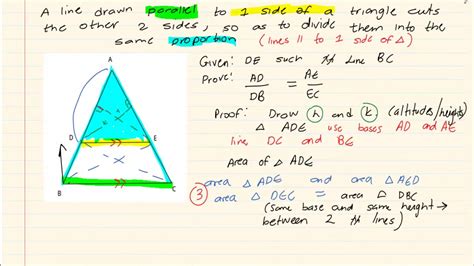 A line drawn parallel to 1 side of a triangle cuts
the other 2 sides, so as to divide them into the
same proportion (lines || to 1 side of Δ)
Given: DE such // line BC
Prove: AD/DB = AE/EC
Proof: Draw h and k (altitudes/heights)
Δ ADE use bases AD and AE
line DC and BE
Area of Δ ADE
area Δ ADE and area Δ AED
③ area Δ DEC = area Δ DBC
(same base and same height →
between 2 // lines)
A
D
E
B
C